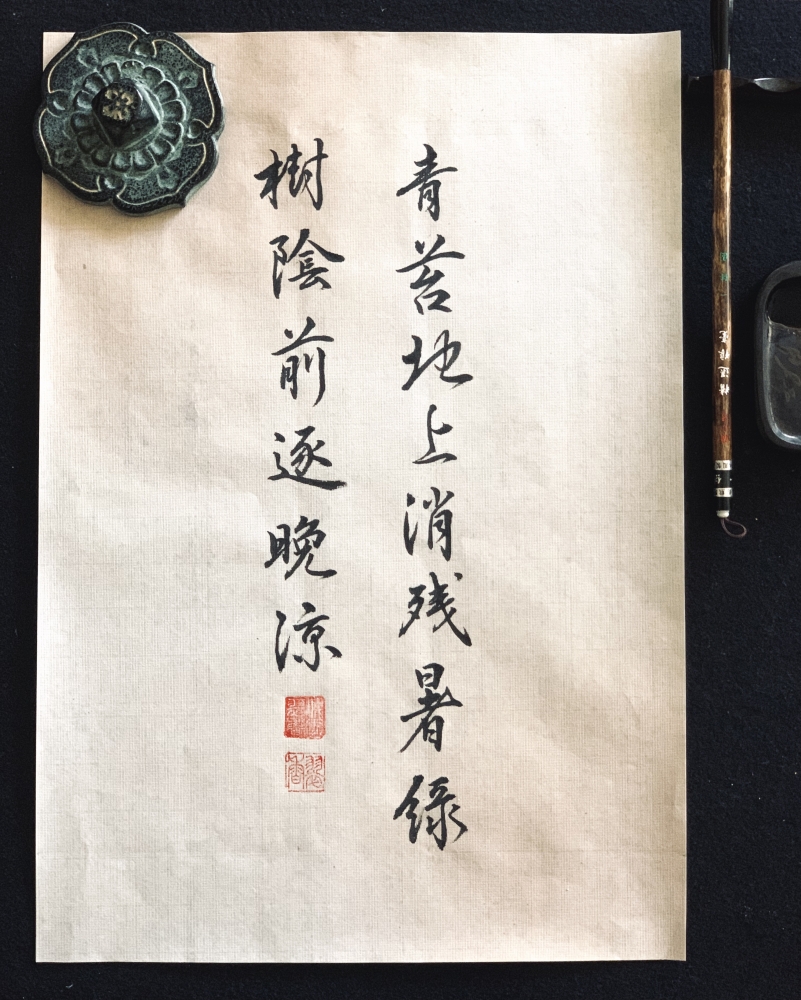 青苔地上消残暑緑
樹陰前逐晩涼